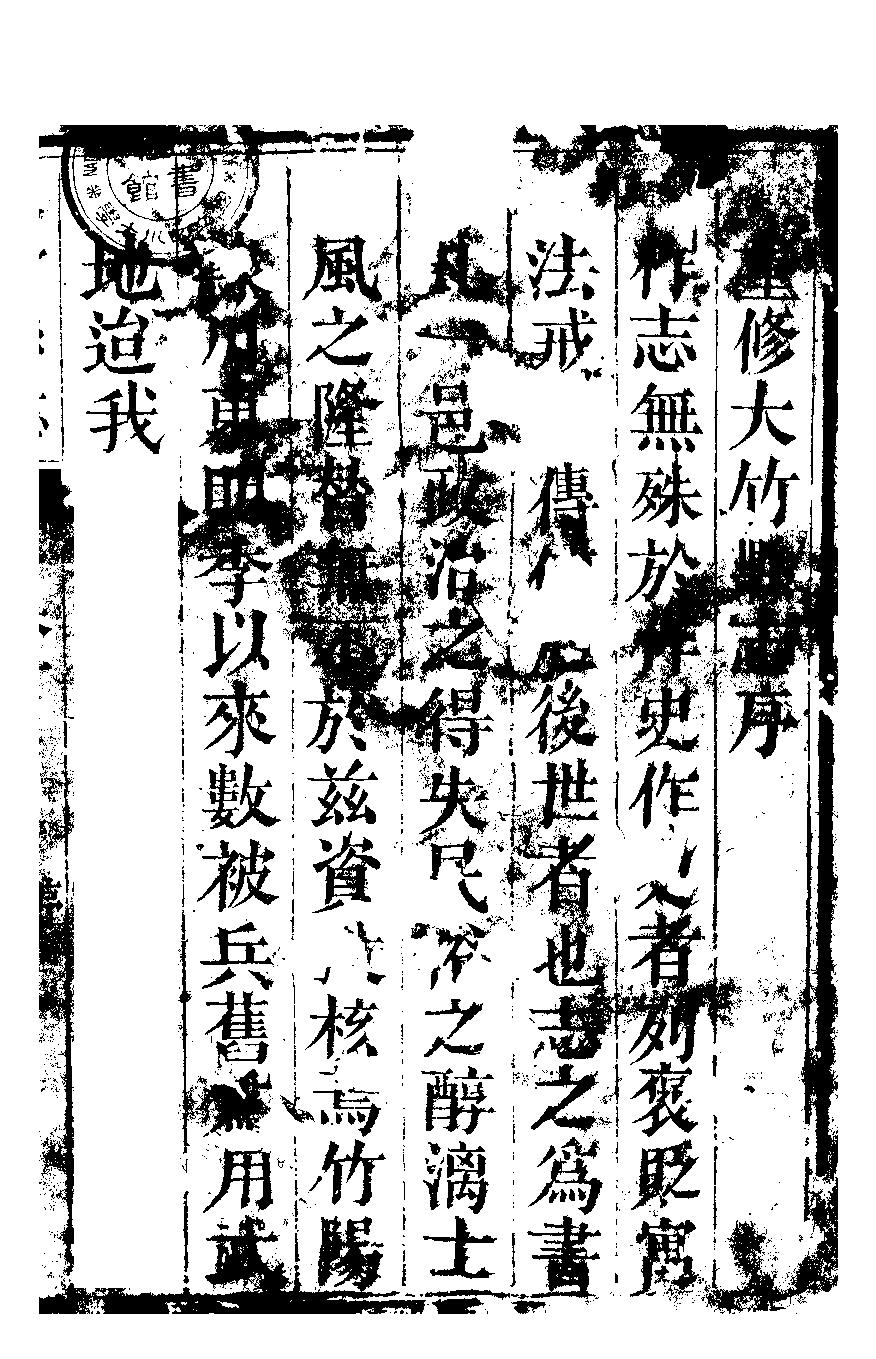 重修大竹縣志序
作志無殊於作史作史者列褒貶寓
法戒傳後世者也志之爲書
凡一邑政治之得失民俗之醇漓士
風之隆替無不於兹資核焉竹陽
川東明季以來數被兵舊用武
地迨我
書
館